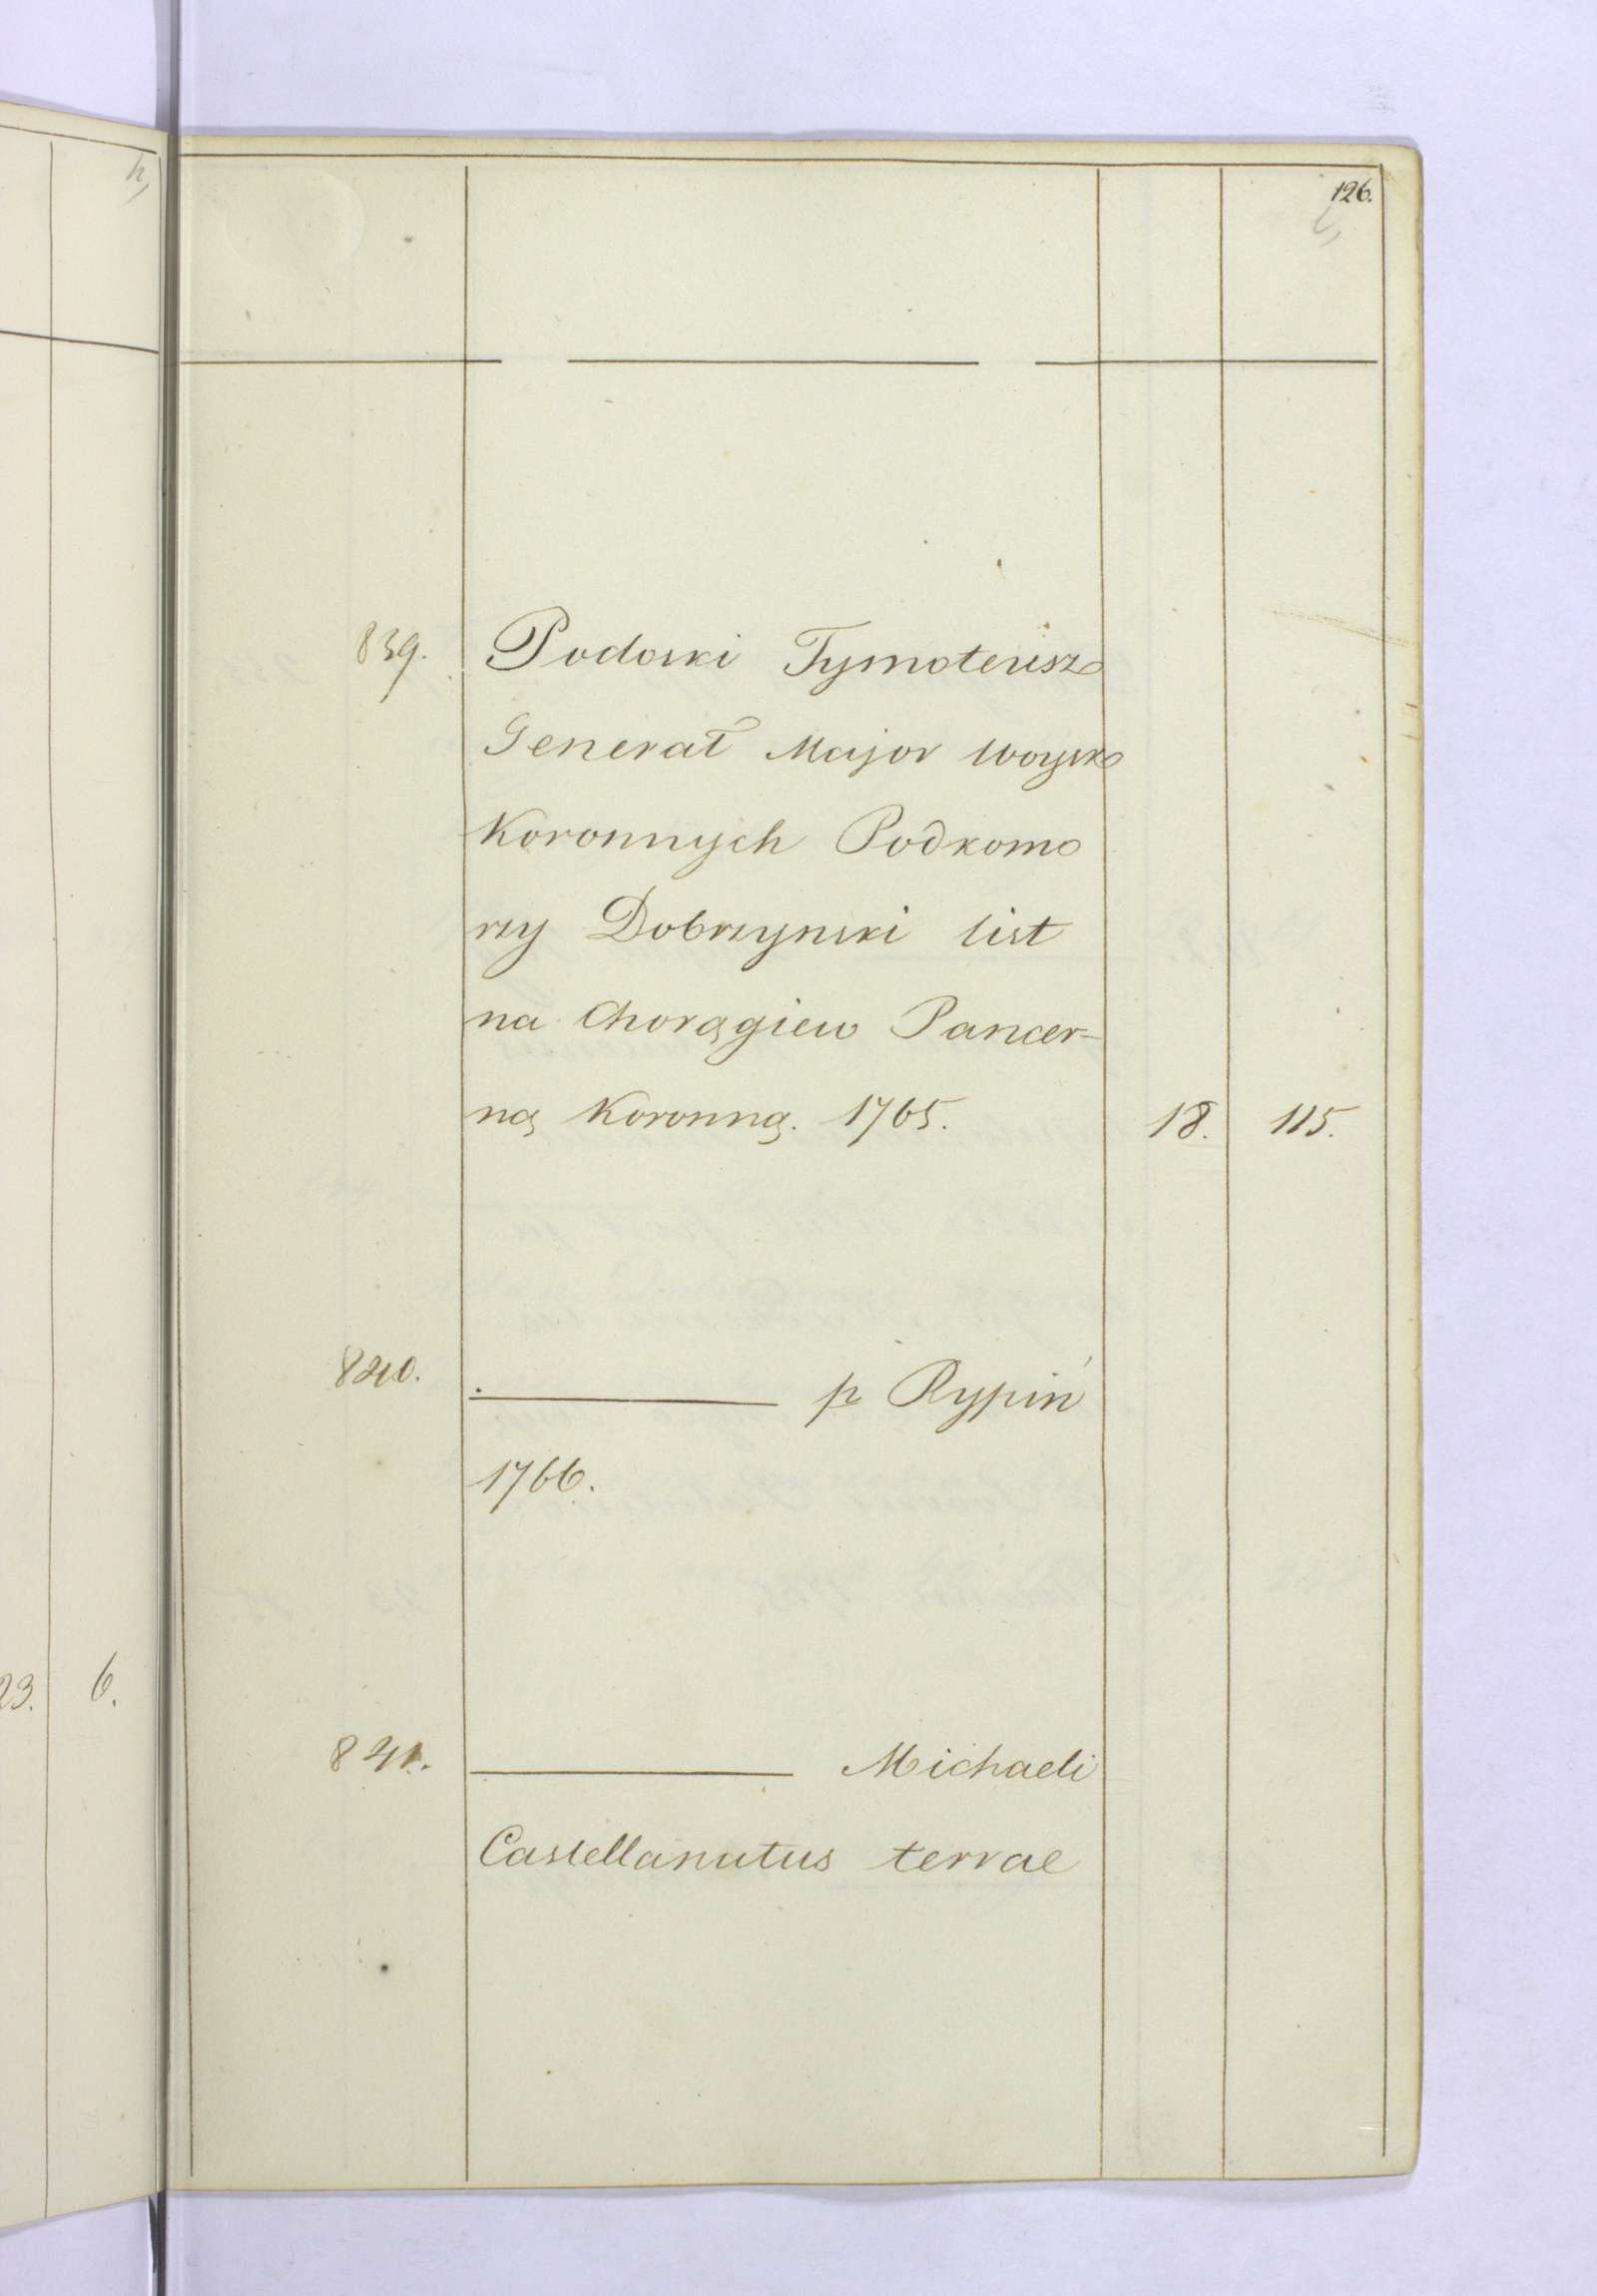 126.
839. Podoski Tymoteusz
Generał Major woysk
Koronnych Podkomo
rzy Dobrzynski list
na Chorągiew Pancer-
ną Koronną. 1765. 18. 115.
840. ——— p Rypiń
1766.
23. 6.
841. ——— Michaeli
Castellanatus terrae